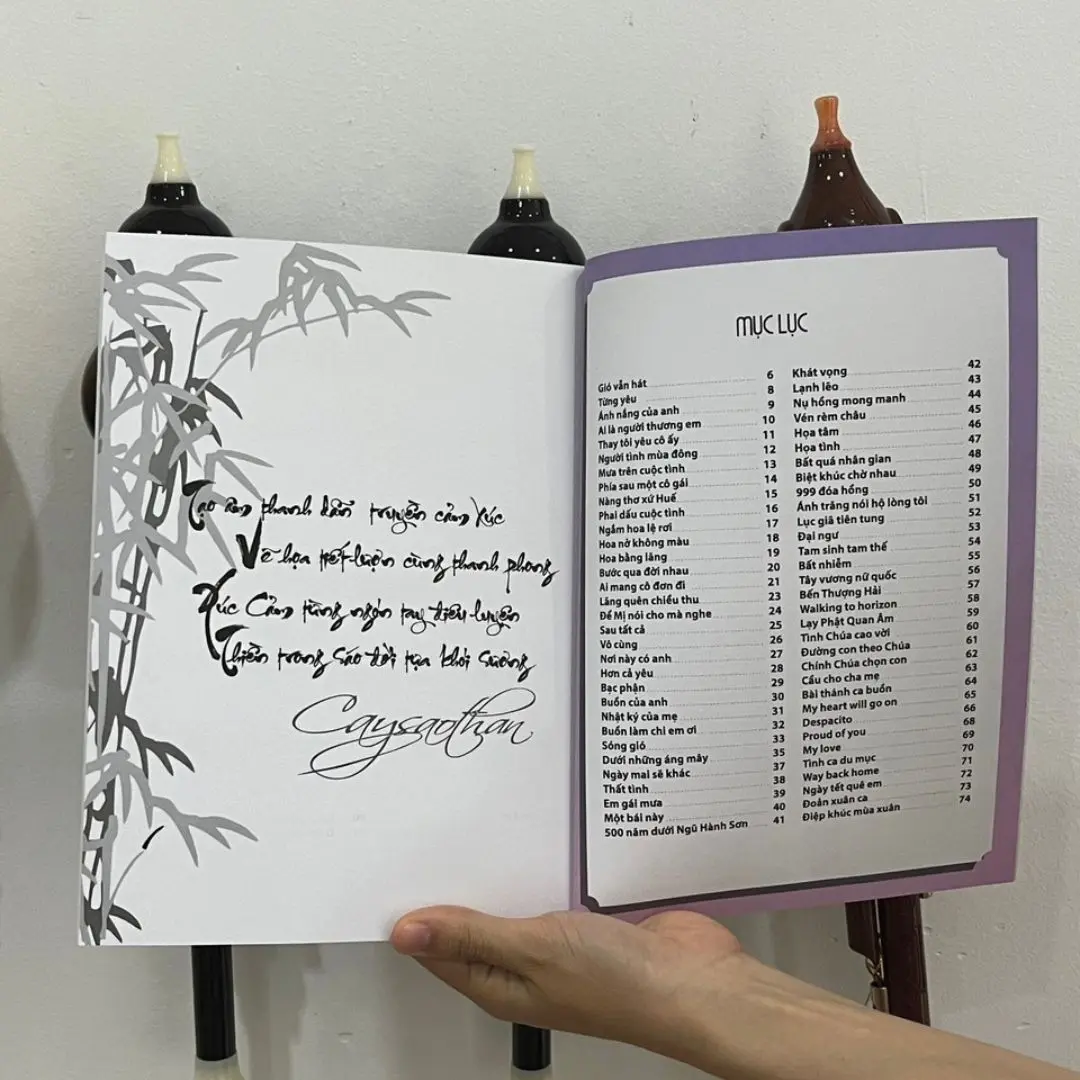 Tạo âm thanh dẫn truyền cảm xúc
Vẽ họa tiết lượn cùng thanh phong
Xúc Cảm từng ngón tay điêu luyện
Thiền trong sáo đời tựa khói sương
Caysaothan
MỤC LỤC
Gió vẫn hát 6
Từng yêu 8
Ánh nắng của anh 9
Ai là người thương em 10
Thay tôi yêu cô ấy 11
Người tình mùa đông 12
Mưa trên cuộc tình 13
Phía sau một cô gái 14
Nàng thơ xứ Huế 15
Phai dấu cuộc tình 16
Ngắm hoa lệ rơi 17
Hoa nở không màu 18
Hoa bằng lăng 19
Bước qua đời nhau 20
Ai mang cô đơn đi 21
Lãng quên chiều thu 23
Để Mị nói cho mà nghe 24
Sau tất cả 25
Vô cùng 26
Nơi này có anh 27
Hơn cả yêu 28
Bạc phận 29
Buồn của anh 30
Nhật ký của mẹ 31
Buồn làm chi em ơi 32
Sóng gió 33
Dưới những áng mây 35
Ngày mai sẽ khác 37
Thất tình 38
Em gái mưa 39
Một bái này 40
500 năm dưới Ngũ Hành Sơn 41
Khát vọng 42
Lạnh lẽo 43
Nụ hồng mong manh 44
Vén rèm châu 45
Họa tâm 46
Họa tình 47
Bất quá nhân gian 48
Biệt khúc chờ nhau 49
999 đóa hồng 50
Ánh trăng nói hộ lòng tôi 51
Lục giã tiên tung 52
Đại ngư 53
Tam sinh tam thế 54
Bất nhiễm 55
Tây vương nữ quốc 56
Bến Thượng Hải 57
Walking to horizon 58
Lạy Phật Quan Âm 59
Tình Chúa cao vời 60
Đường con theo Chúa 61
Chính Chúa chọn con 62
Cầu cho cha mẹ 63
Bài thánh ca buồn 64
My heart will go on 65
Despacito 66
Proud of you 68
My love 69
Tình ca du mục 70
Way back home 71
Ngày tết quê em 72
Đoản xuân ca 73
Điệp khúc mùa xuân 74